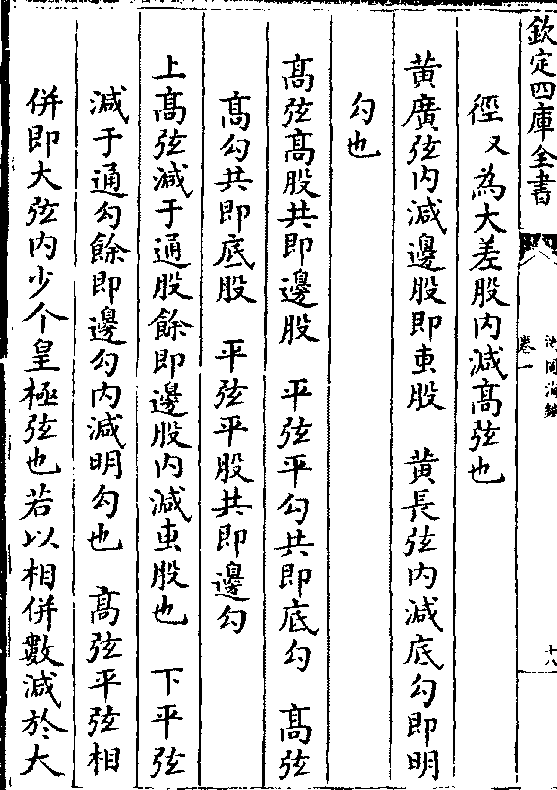 欽定四庫全書
測圓海鏡
卷一
十八
徑又為大差股内減髙弦也
黄廣弦内減邊股即叀股　黄長弦内減底勾即明
勾也
髙弦髙股共即邊股　平弦平勾共即底勾　髙弦
髙勾共即底股　平弦平股共即邊勾
上髙弦減于通股餘即邊股内減叀股也　下平弦
減于通勾餘即邊勾内減明勾也　髙弦平弦相
併即大弦内少个皇極弦也若以相併數減於大